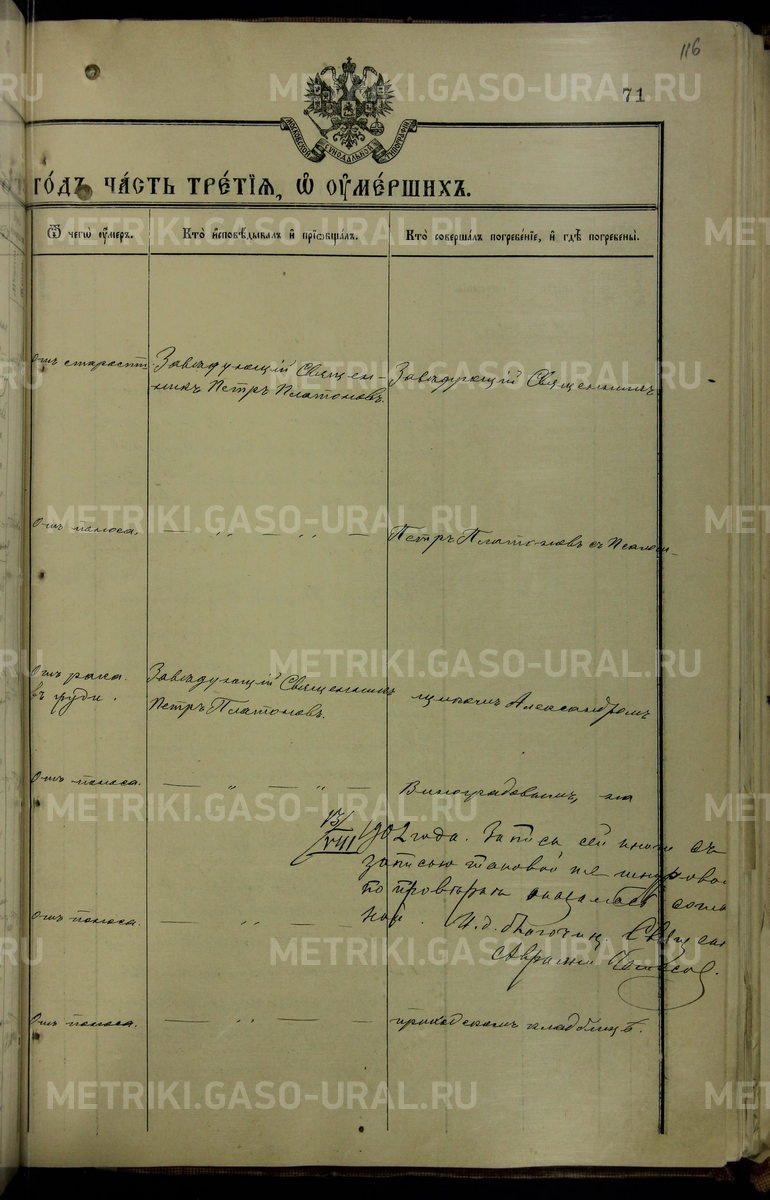 116
71
МОСКОВСКОЙ СѴНОДАЛЬНОЙ ТИПОГРАФІИ
го́дъ ча́сть тре́тїѧ, ѡ҆ ᲂу҆ме́ршихъ.
Ѿ чегѡ̀ ᲂу҆́меръ.
Кто̀ и҆сповѣ́дывалъ и҆ прїѡбща́лъ.
Кто̀ соверша́лъ погребе́нїе, и҆ гдѣ̀ погребены̀.
Отъ старости
Завѣдующій Священ-
никъ Петръ Платоновъ.
Завѣдующій Священникъ
Отъ поноса.
— „ — „ —
Петръ Платоновъ съ Псалом-
Отъ рака
въ груди.
Завѣдующій Священникъ
Петръ Платоновъ.
щикомъ Александромъ
Отъ поноса.
— „ — „ —
Виноградовымъ, на
13/VIII 1902 года. Запись сей книги съ
записью таковой же шнуровой
по провѣркѣ оказалась соглас
ной. И. д. благочин. Священ
Отъ поноса.
— „ — —
Отъ поноса.
— „ — —
приходскомъ кладбищѣ.
METRIKI.GASO-URAL.RU